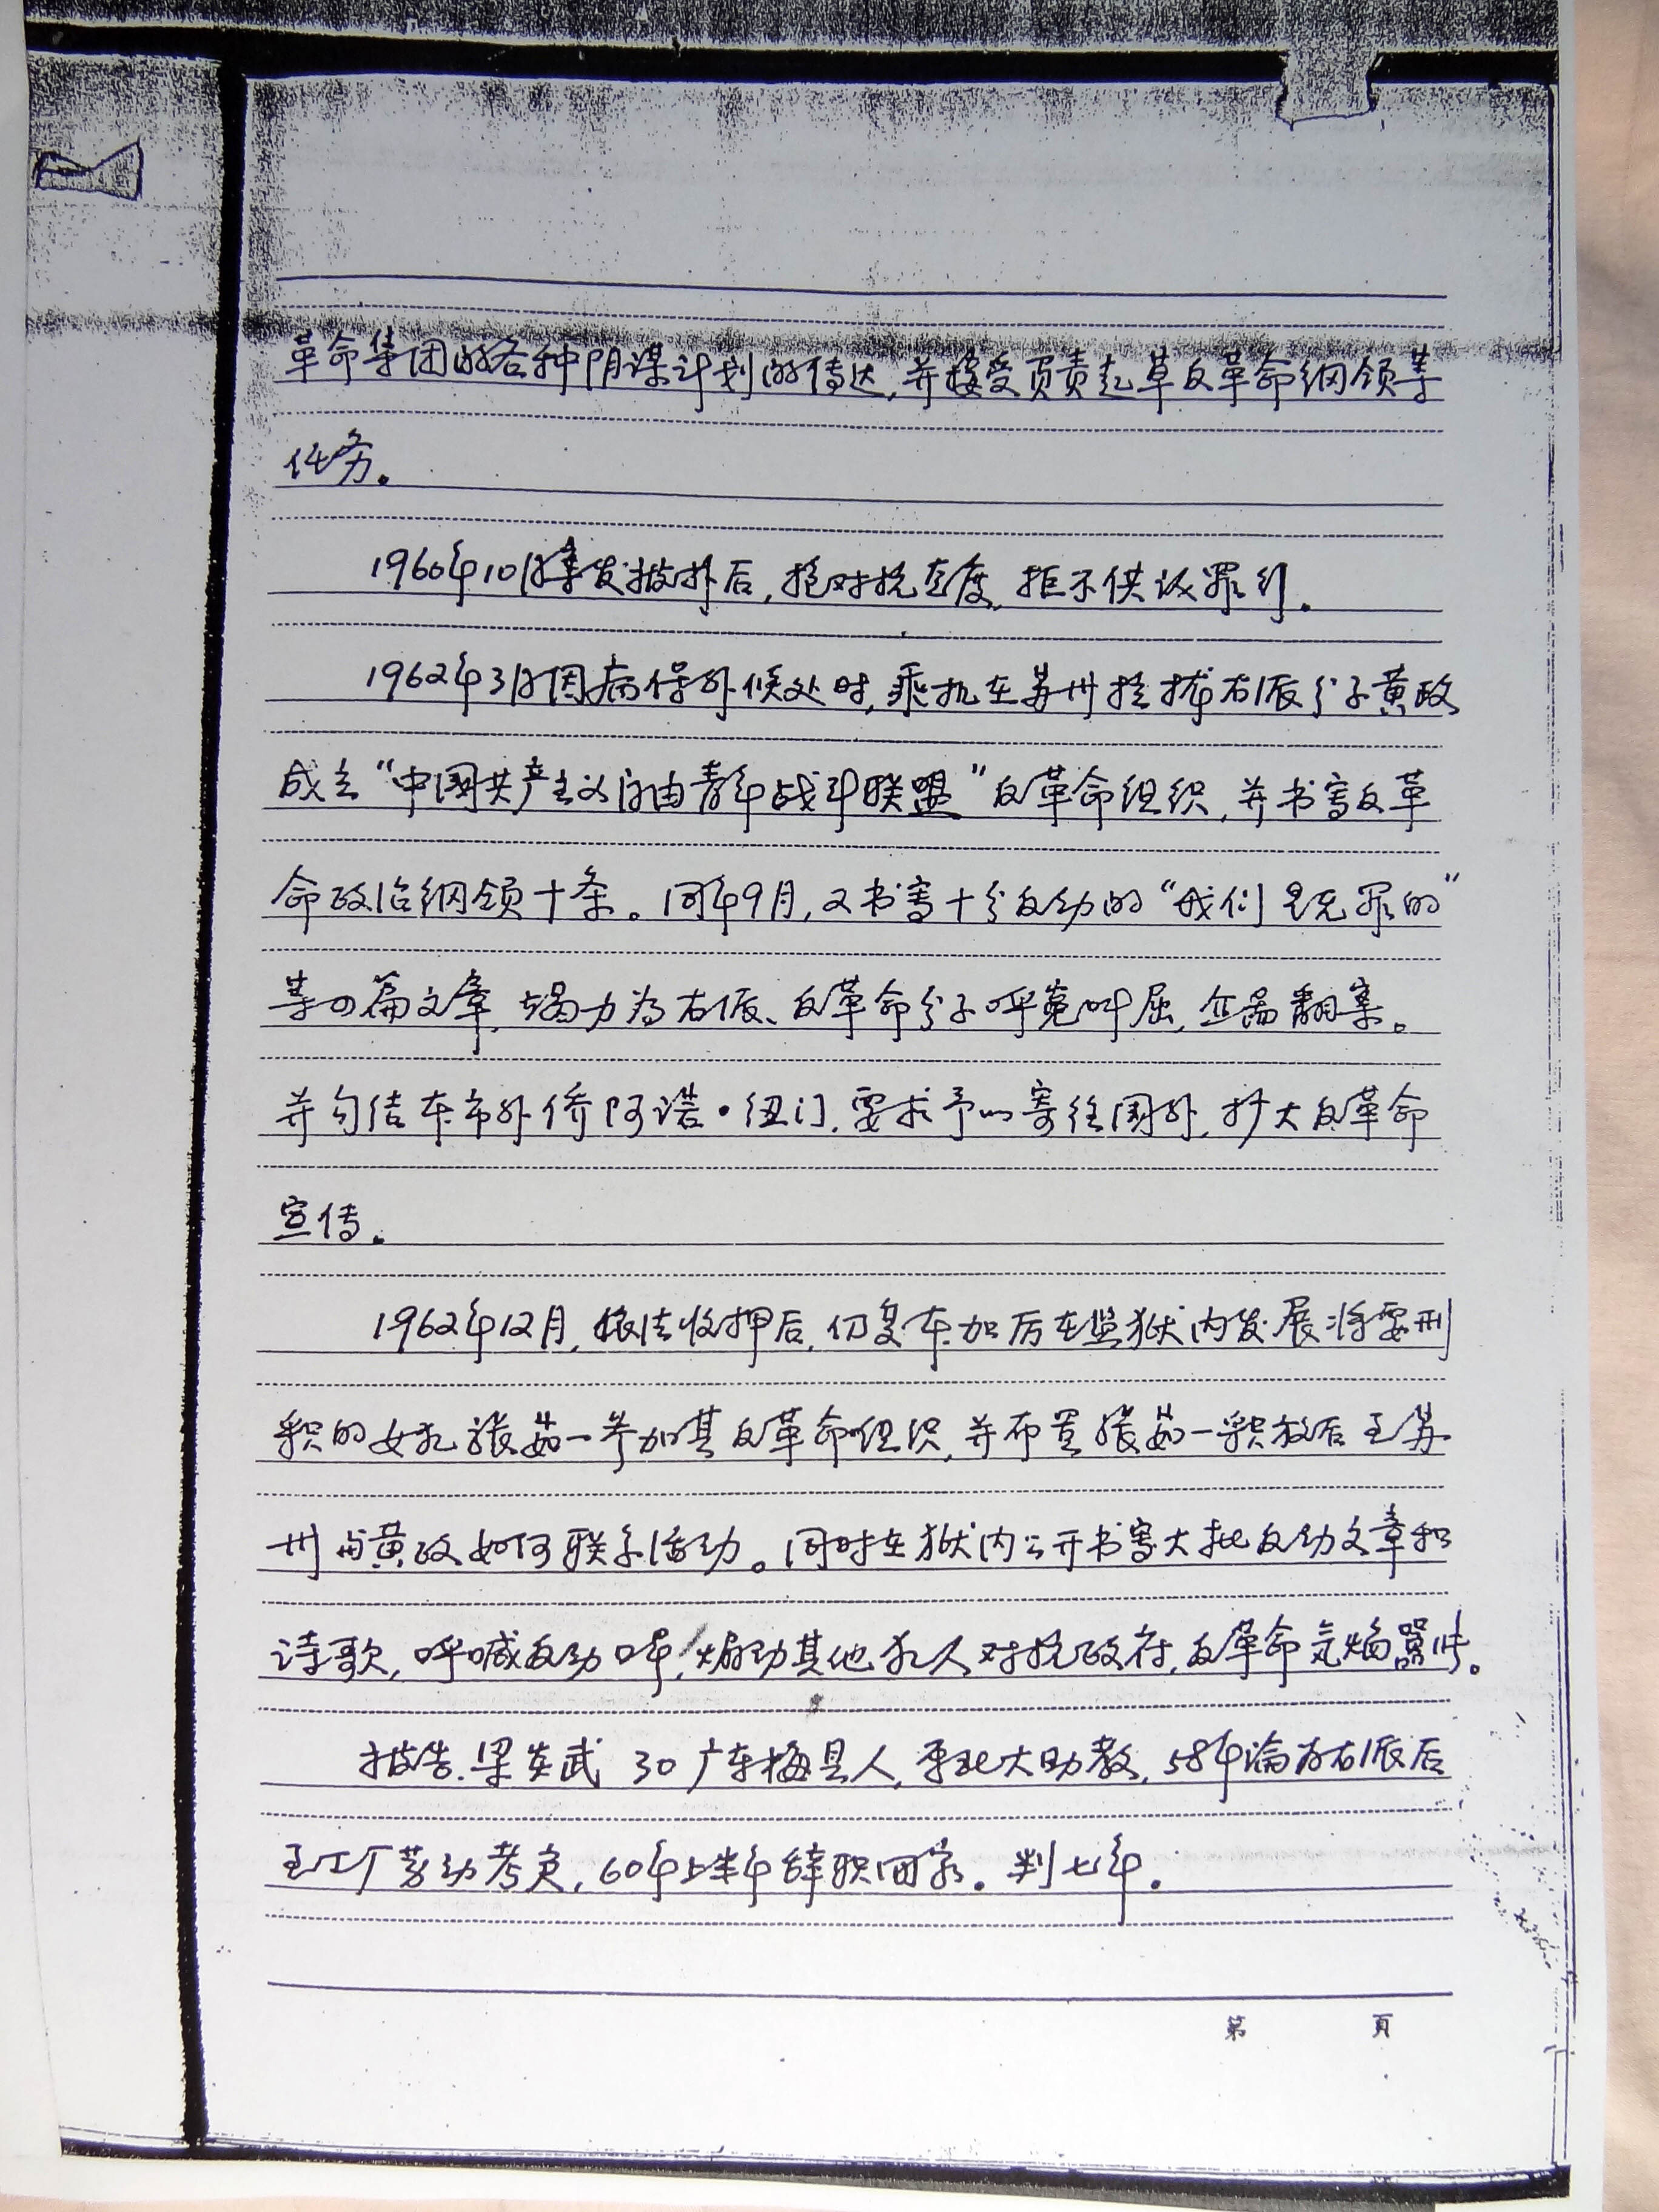 革命集团的各种阴谋计划的传达,并接受负责起草反革命纲领等
任务。
1960年10月事发被捕后,抱对抗态度,拒不供认罪行。
1962年3月因病保外候处时,乘机在苏州拉拢右派分子黄政
成立“中国共产主义自由青年战斗联盟”反革命组织,并书写反革
命政治纲领十条。同年9月,又书写十分反动的“我们是无罪的”
等四篇文章,竭力为右派、反革命分子呼冤叫屈,企图翻案。
并勾结本市外侨阿诺·纽门,要求予以寄往国外,扩大反革命
宣传。
1962年12月,依法收押后,仍变本加厉在监狱内发展将要刑
积的女犯张茹一参加其反革命组织,并布置张茹一积放后至苏
州与黄政如何联系活动。同时在狱内公开书写大批反动文章和
诗歌,呼喊反动口号,煽动其他犯人对抗政府,反革命气焰嚣张。
被告.梁炎武 30 广东梅县人,原北大助教,58年论为右派后
至工厂劳动考查,60年上半年辞职回家。判七年。
第 頁